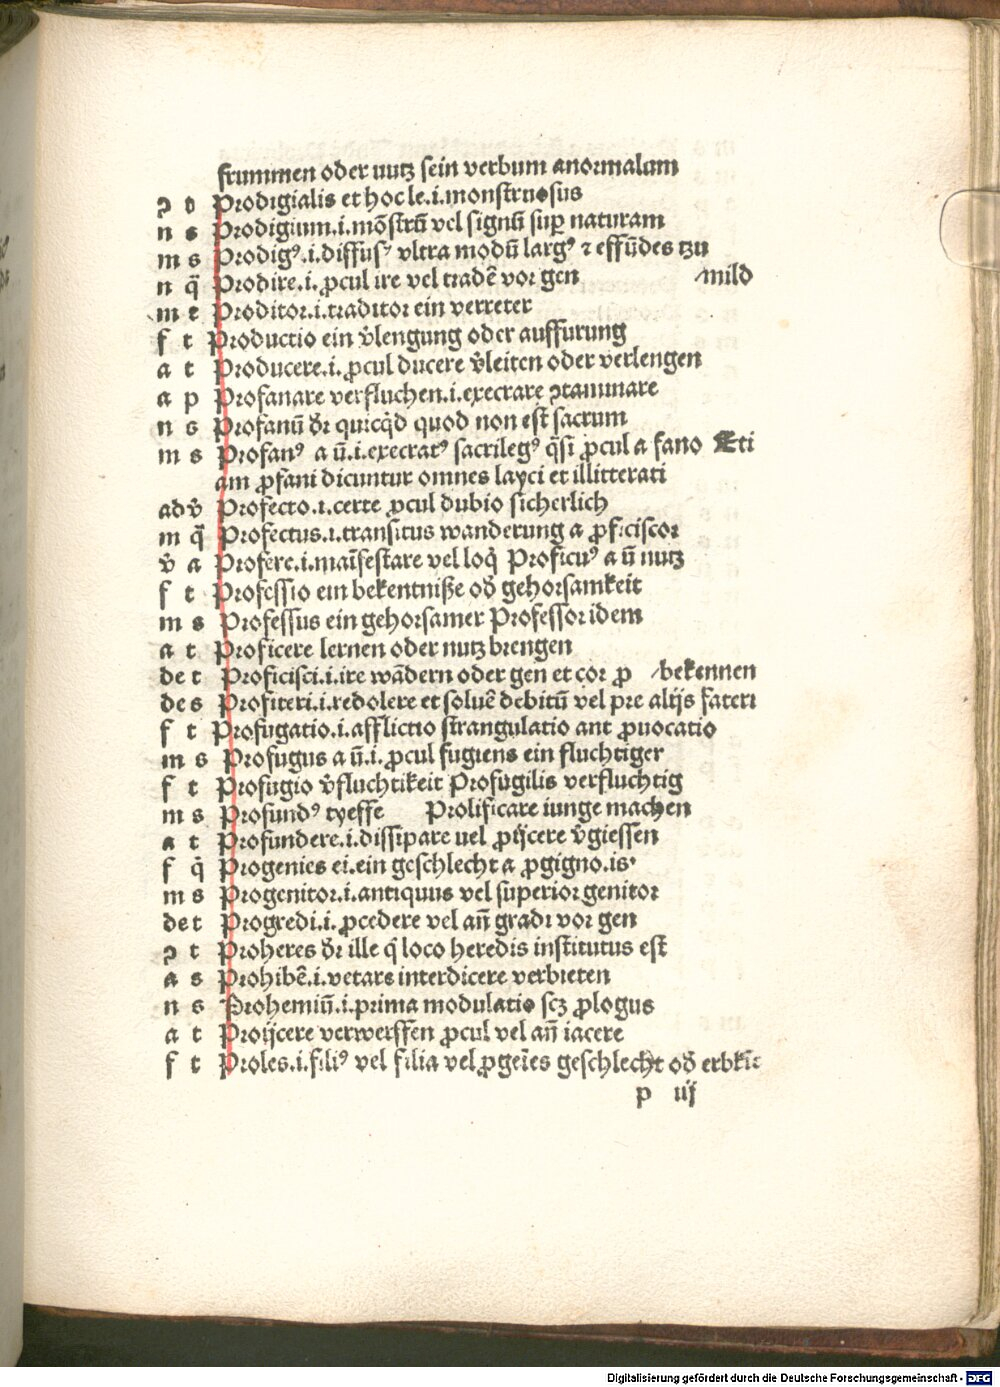 frummen oder nutz sein verbum anormalum
ꝯ d Prodigialis et hoc le.i.monstruosus
n s Prodigium.i.mōstrū vel signū suꝑ naturam
m s Prodigꝰ.i.diffusꝰ vltra modū largꝰ ⁊ effūdes tzu
n q̄ Prodire.i.ꝓcul ire vel tradē vor gen mild
m t Proditor.i.traditor ein verreter
f t Productio ein v̄lengung oder auffurung
a t Producere.i.ꝓcul ducere v̄leiten oder verlengen
a p Profanare verfluchen.i.execrare ꝯtaminare
n s Profanū dr̄ quicq̇d quod non est sacrum
m s Profanꝰ a ū.i.execratꝰ sacrilegꝰ q̄si ꝓcul a fano Eti
am ꝓfani dicuntur omnes layci et illitterati
adv̄ Profecto.i.certe ꝓcul dubio sicherlich
m q̄ Profectus.i.transitus wanderung a ꝓficiscor
v̄ a Profere.i.maīfestare vel loq̇ Proficuꝰ a ū nutz
f t Professio ein bekentniße od̄ gehorsamkeit
m s Professus ein gehorsamer Professor idem
a t Proficere lernen oder nutz brengen
de t Proficisci.i.ire wādern oder gen et cor ꝓ bekennen
de s Profiteri.i.redolere et soluē debitū vel pre alijs fateri
f t Profugatio.i.afflictio strangulatio ant ꝓuocatio
m s Profugus a ū.i.ꝓcul fugiens ein fluchtiger
f t Profugio v̄fluchtikeit Profugilis verfluchtig
m s Profundꝰ tyeffe Prolificare iunge machen
a t Profundere.i.dissipare uel ꝓijcere v̄giessen
f q̇ Progenies ei.ein geschlecht a ꝓgigno.is
m s Progenitor.i.antiquus vel superior genitor
de t Progredi.i.ꝓcedere vel an̄ gradi vor gen
ꝯ t Proheres dr̄ ille q̇ loco heredis institutus est
a s Prohibē.i.vetare interdicere verbieten
n s Prohemiū.i.prima modulatio scꝫ ꝓlogus
a t Proijcere verwerffen ꝓcul vel an̄ iacere
f t Proles.i.filiꝰ vel filia vel ꝓgeīes geschlecht od̄ erbkīt
p iij
Digitalisierung gefördert durch die Deutsche Forschungsgemeinschaft - DFG